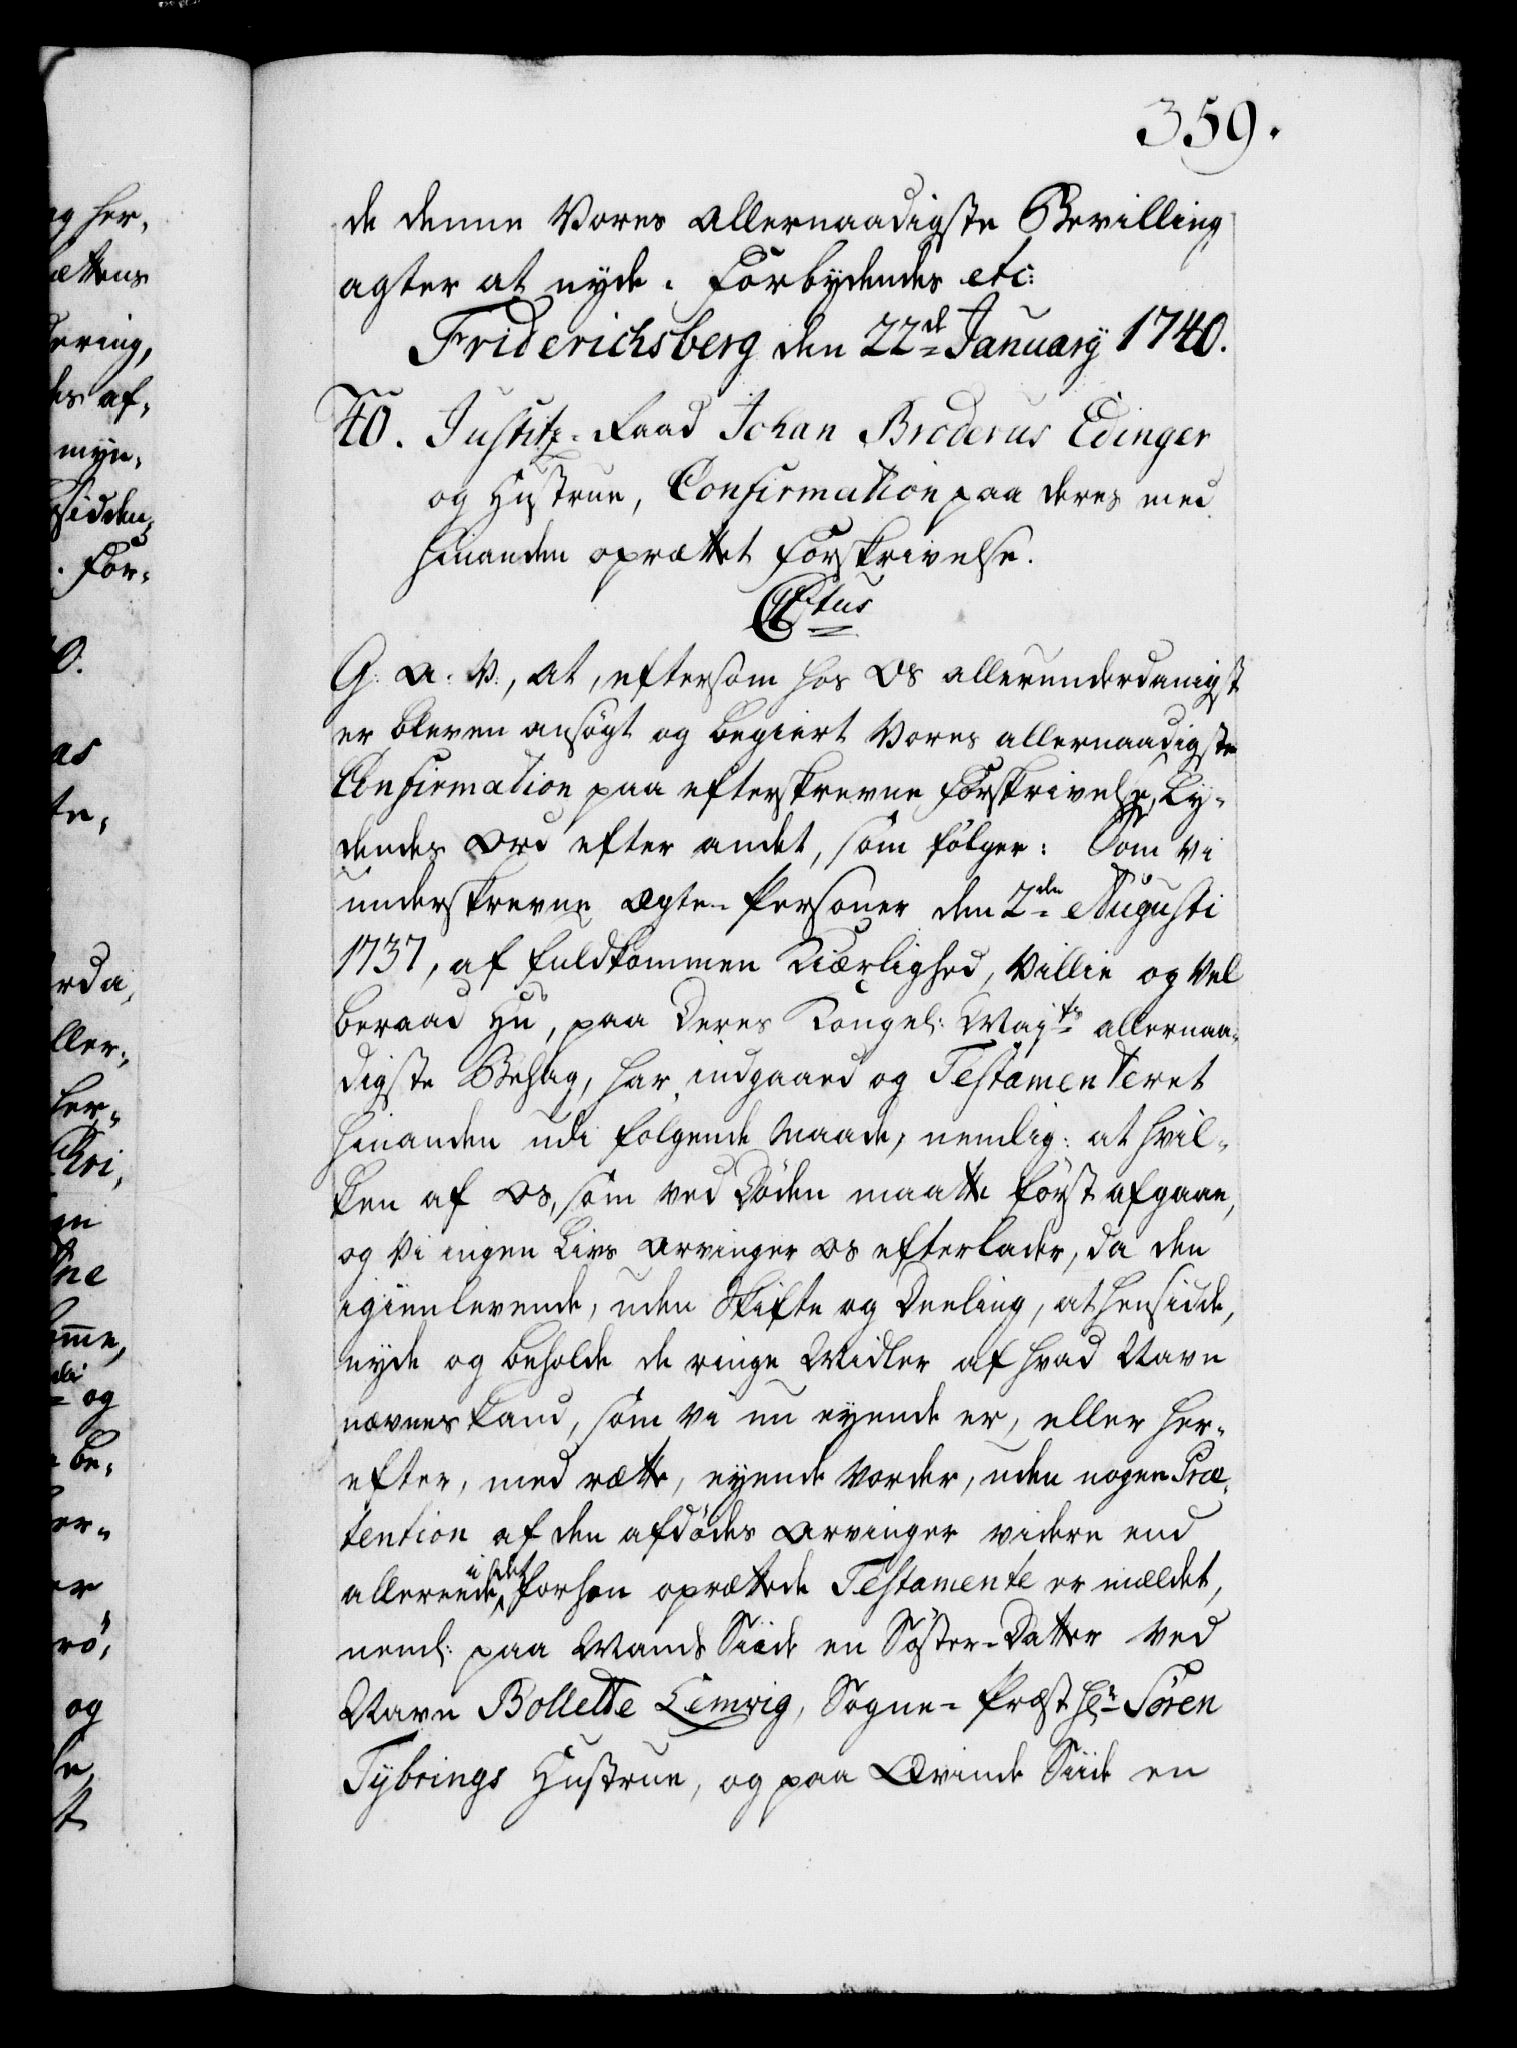 359.
de denne Vores allernaadigste Bevilling
agter at nyde. Forbydendes etc:
Friderichsberg den 22de January 1740.
40. Justitz-Raad Johan Broderus Edinger
og Hustrue, Confirmation paa deres med
hinanden oprættet Forskrivelse.
C 6tus
G. A. V., at, eftersom hos Os allerunderdanigst
er bleven ansøgt og begiert Vores allernaadigste
Confirmation paa efterskrevne Forskrivelse, Ly-
dendes Ord efter andet, som følger: Som vi
underskrevne Ægte-Personer den 2den Augusti
1737, af fuldkommen Kiærlighed, Villie og Vel
beraad Hu, paa Deres Kongel: Majts allernaa-
digste Behag, har indgaaed og Testamenteret
hinanden udi følgende Maade, nemlig: at hvil-
ken af os, som ved Døden maatte først afgaae,
og Vi ingen Livs Arvinger os efterlader, da den
igienlevende, uden Skifte og Deeling, at hensidde,
nyde og beholde de ringe Midler af hvad Navn
nævnes kand, som vi nu eyende er, eller her-
efter, med rætte, eyende vorder, uden nogen Præ-
tention af den afdødes Arvinger videre end
allereede i sidst forhen oprættede Testamente er meldet,
neml: paa Mands Siide en Søster-Datter ved
Navn Bollette Lemvig, Sogne-Præst Hr Søren
Tybrings Hustrue, og paa Qvinde Siide en
og her-
ættens
dering,
des af-
myn-
sidden,
. For-
0.
as
te,
rda,
ller-
her-
Chri,
gn
ne
omme,
og
be-
er-
er
rö-
og